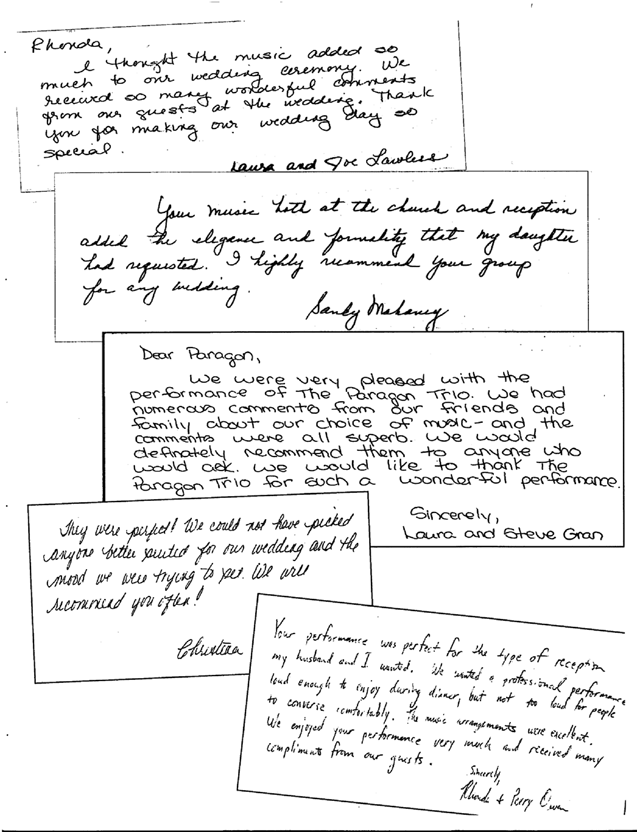 Rhonda,
I thought the music added so
much to our wedding ceremony. We
received so many wonderful comments
from our guests at the wedding. Thank
you for making our wedding day so
special.
Laura and Joe Lawless
Your music both at the church and reception
added the elegance and formality that my daughter
had requested. I highly recommend your group
for any wedding.
Sandy Mahaney
Dear Paragon,
We were very pleased with the
performance of The Paragon Trio. We had
numerous comments from our friends and
family about our choice of music - and the
comments were all superb. We would
definately recommend them to anyone who
would ask. We would like to thank The
Paragon Trio for such a wonderful performance.
Sincerely,
Laura and Steve Gran
They were perfect! We could not have picked
anyone better suited for our wedding and the
mood we were trying to set. We will
recommend you often!
Christina
Your performance was perfect for the type of reception
my husband and I wanted. We wanted a professional performance
loud enough to enjoy during dinner, but not too loud for people
to converse comfortably. The music arrangements were excellent.
We enjoyed your performance very much and received many
compliments from our guests.
Sincerely,
Rhonda + Perry Owen